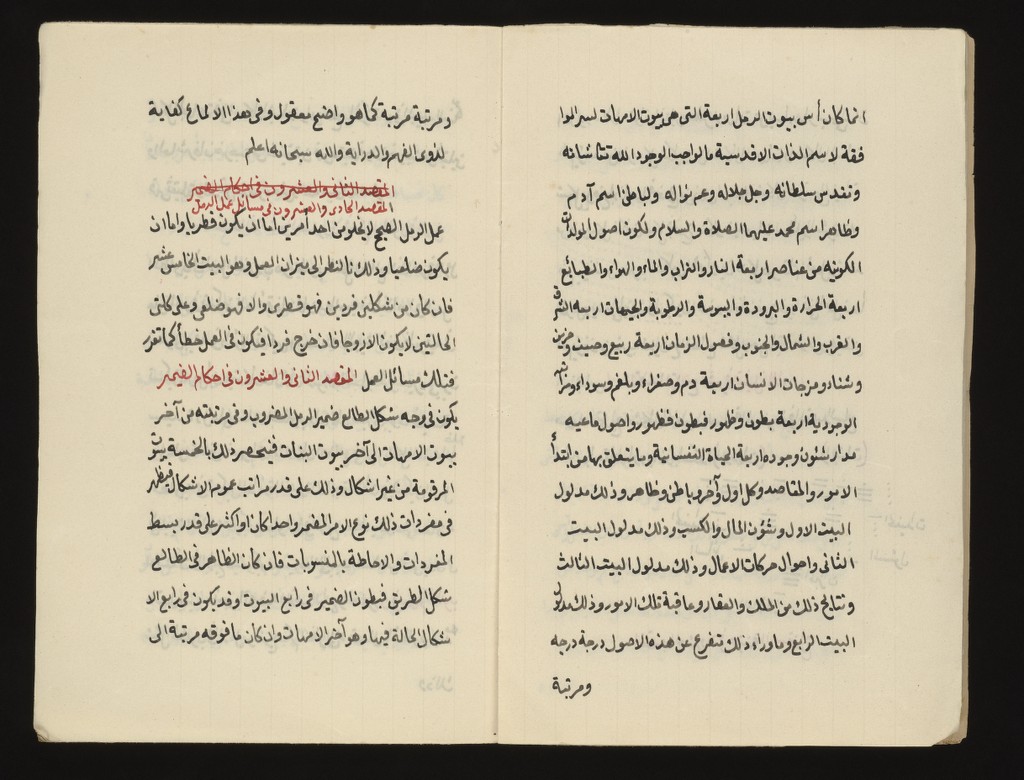 انما كان أس بيوت الرمل اربعة التى هى بيوت الامهات لسر الموا
فقة لاسم الذات الاقدسية مالواجب الوجود الله تتا شانه
وتقدس سلطانه وجل جلاله وعم نواله ولباطن اسم آدم
وظاهر اسم محمد عليهما الصلاة والسلام ولكون اصول المولدات
الكونيه من عناصر اربعة النار والتراب والماء والهواء والطبائع
اربعة الحرارة والبرودة واليبوسة والرطوبة والجهات اربعه الشرق
والغرب والشمال والجنوب وفصول الزمان اربعة ربيع وصيف وخريف
وشتاء ومزجات الانسان اربعة دم وصفراء وبلغم وسوداء ومراتب
الوجودية اربعة بطون وظهور فبطون فظهور واصول ما عيه
مدار شئون وجوده اربعة الحياة النفسانية وما يتعلق بها من ابتدأ
الامور والمقاصد وكل اول آخر وباطن وظاهر وذلك مدلول
البيت الاول وشؤن المال والكسب وذلك مدلول البيت
الثانى واحوال حركات الاعمال وذلك مدلول البيت الثالث
ونتايج ذلك من الملك والعقار وعاقبة تلك الامور وذلك مدلول
البيت الرابع وما وراء ذلك تتفرع عن هذه الاصول درجة درجه
ومرتبة
ومرتبة مرتبة كما هو واضح معقول وفى هذا الالماع كفاية
لذوى الفهم والدراية والله سبحانه اعلم
المقصد الثانى والعشرون فى احكام الضمير
المقصد الحادى والعشرون فى مسائل عمل الرمل
عمل الرمل الصحيح لا يخلو من احد أمرين اما ان يكون قطريا واما ان
يكون ضلعيا وذلك بالنظر الى ميزان العمل وهو البيت الخامس عشر
فان كان من شكلين فردين فهو قطرى والا فهو ضلعى وعلى كلتى
الحالتين لا يكون الا زوجا فان خرج فردا فيكون فى العمل خطأ كما تقرر
فتلك مسائل العمل المقصد الثانى والعشرون فى احكام الضمير
يكون فى وجه شكل الطالع ضمير الرمل المضروب وفى مرتبته من آخر
بيوت الامهات الى آخر بيوت البنات فينحصر ذلك بالخمسة بيوت
المرقومة من غير اشكال وذلك على قدر مراتب عموم الاشكال فيظهر
فى مفردات ذلك نوع الامر المضمر واحدا كان او اكثر على قدر بسط
المفردات والاحاطة بالمنسوبات فان كان الظاهر فى الطالع
شكل الطريق فبطون الضمير فى رابع البيوت وقد يكون فى رابع الا
شكال الحالة فيها وهو آخر الامهات وان كان ما فوقه مرتبة الى